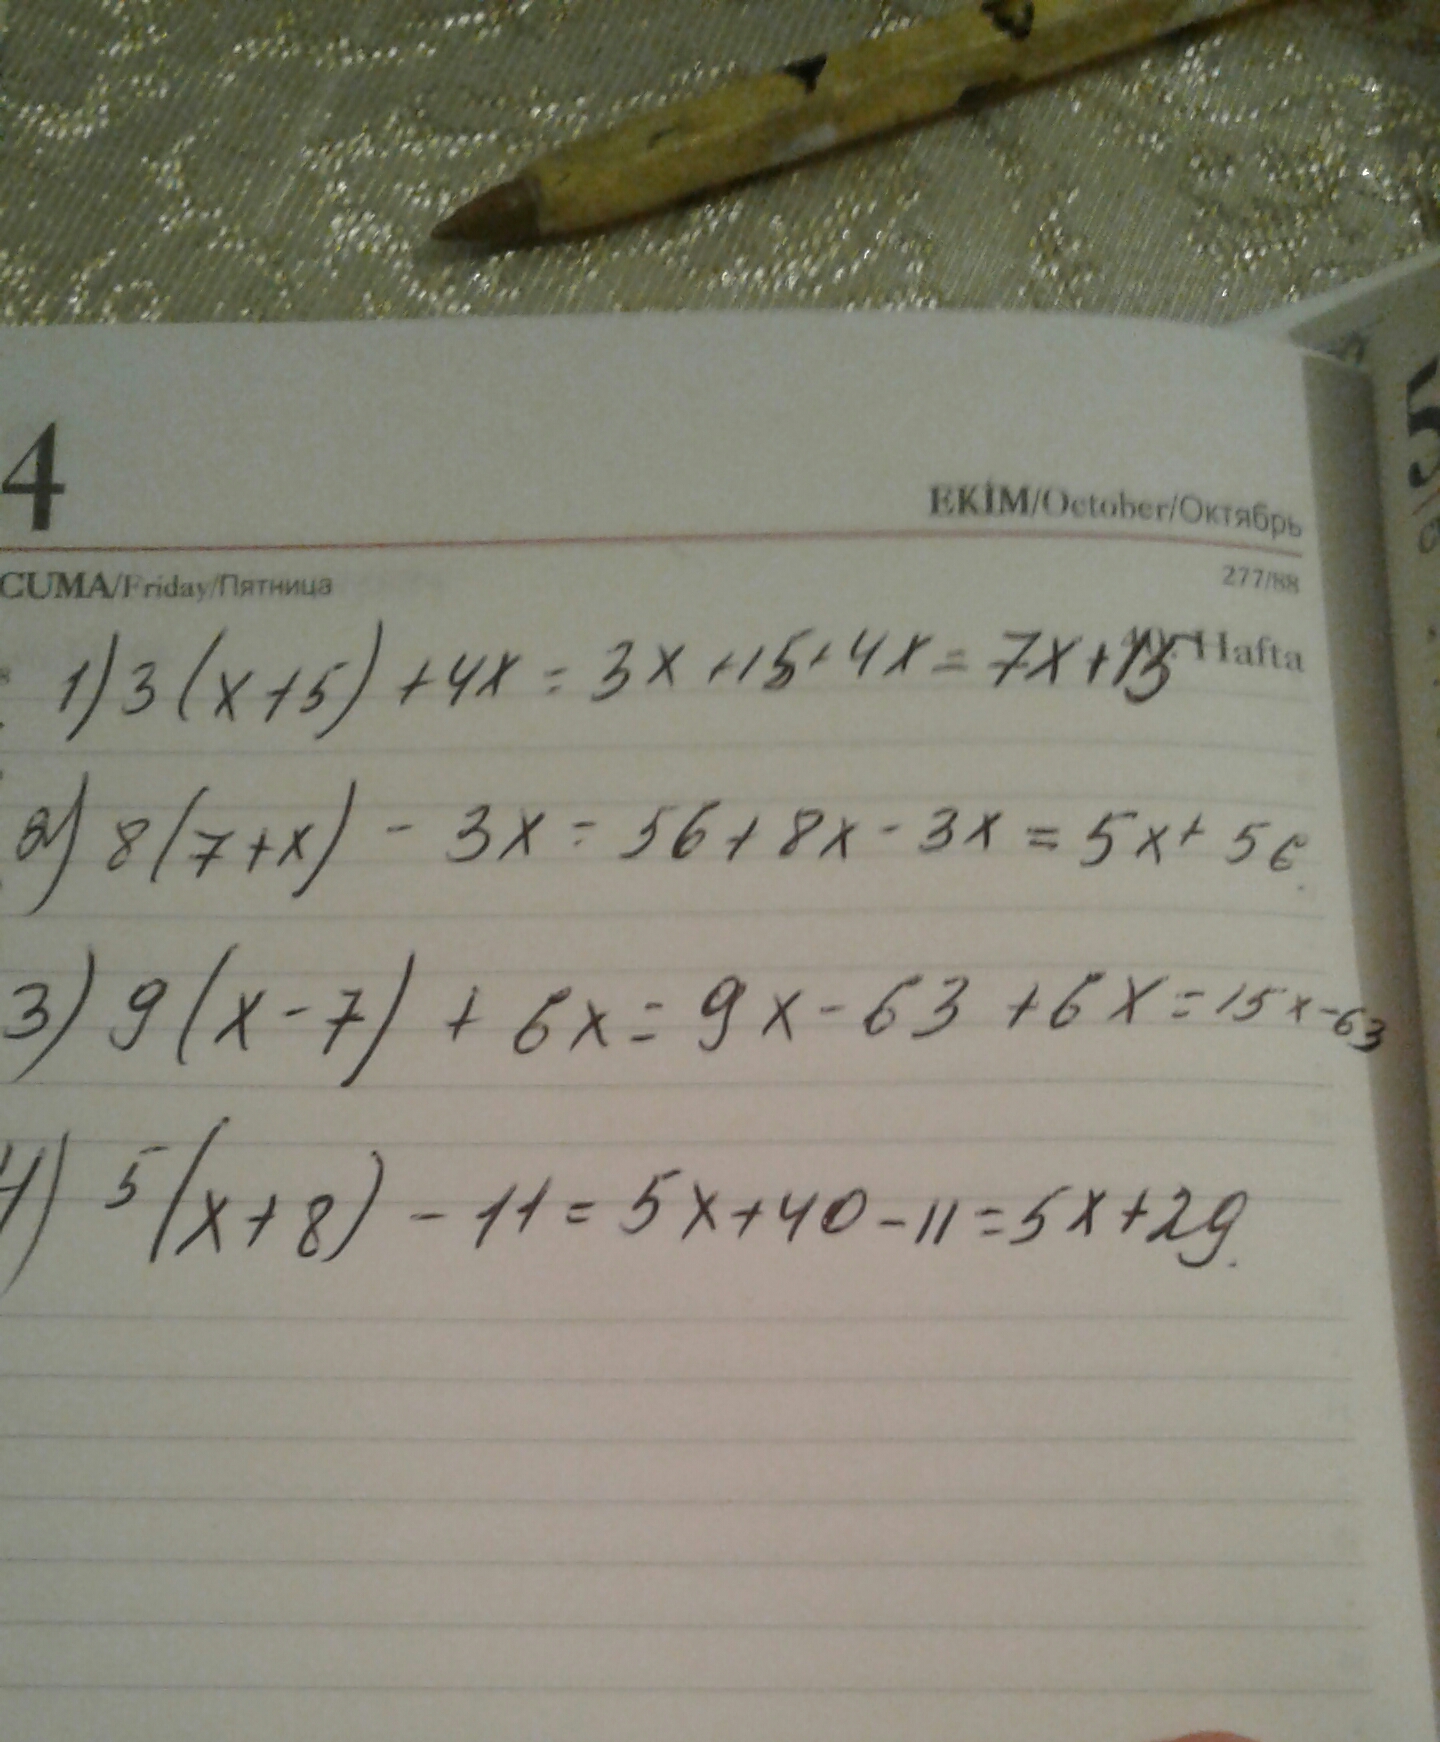 4
EKİM/October/Октябрь
5
CUMA/Friday/Пятница
277/88
Hafta
1) 3(x+5) +4x = 3x +15+4x = 7x+15
2) 8(7+x) - 3x = 56+8x-3x = 5x+56.
3) 9(x-7) + 6x = 9x-63 +6x = 15x-63
4) 5(x+8) - 11 = 5x+40-11 = 5x+29.